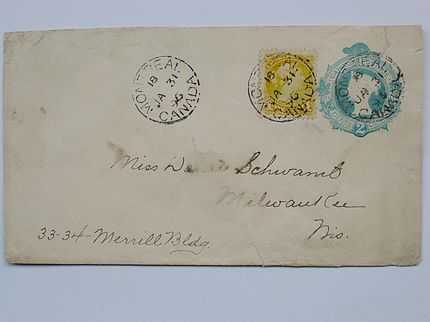 MONTREAL CANADA
18
JA 31
96
MONTREAL CANADA
18
JA 31
96
MONTREAL CANADA
JA
2
Miss Schwamt
Milwaukee
Wis.
33-34- Merrill Bldg.